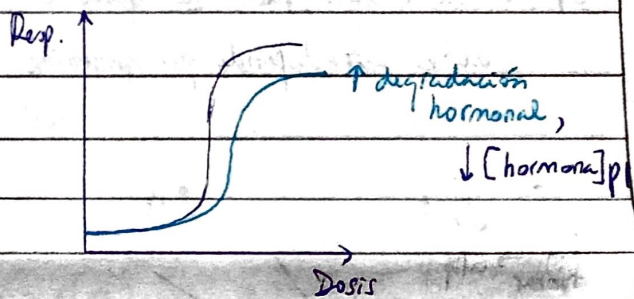 Resp.
↑ degradación
hormonal,
↓ [hormona]p
Dosis